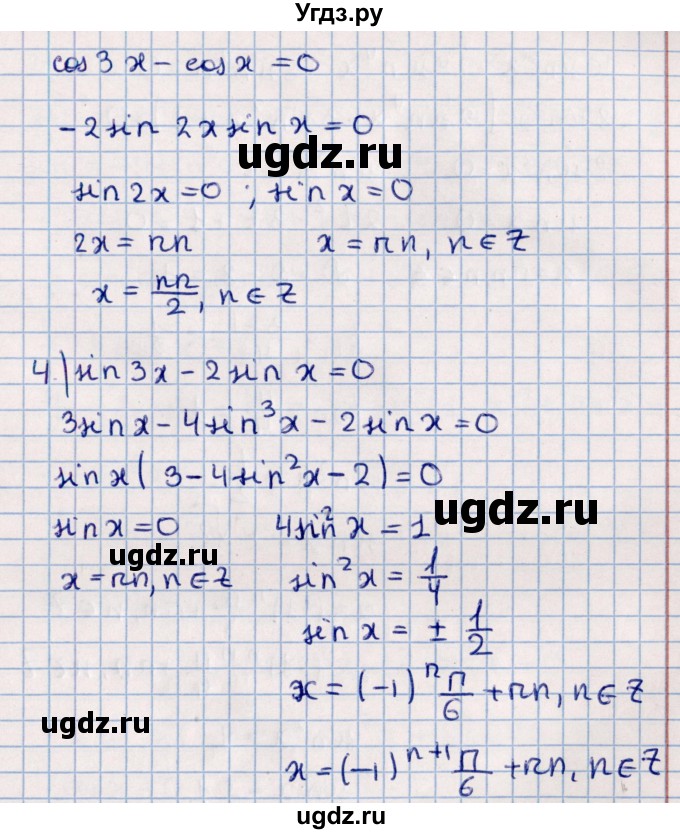 Угдз.ру
cos 3x - cos x = 0
-2 sin 2x sin x = 0
ugdz.ru
sin 2x = 0 ; sin x = 0
2x = πn x = πn, n ∈ Z
x = πn/2, n ∈ Z
4) sin 3x - 2 sin x = 0
3 sin x - 4 sin³x - 2 sin x = 0
sin x ( 3 - 4 sin²x - 2 ) = 0
ugdz.ru
sin x = 0 4 sin²x = 1
ugdz.ru
x = πn, n ∈ Z sin²x = 1/4
sin x = ± 1/2
x = (-1)ⁿ π/6 + πn, n ∈ Z
ugdz.ru
x = (-1)ⁿ⁺¹ π/6 + πn, n ∈ Z
ugdz.ru